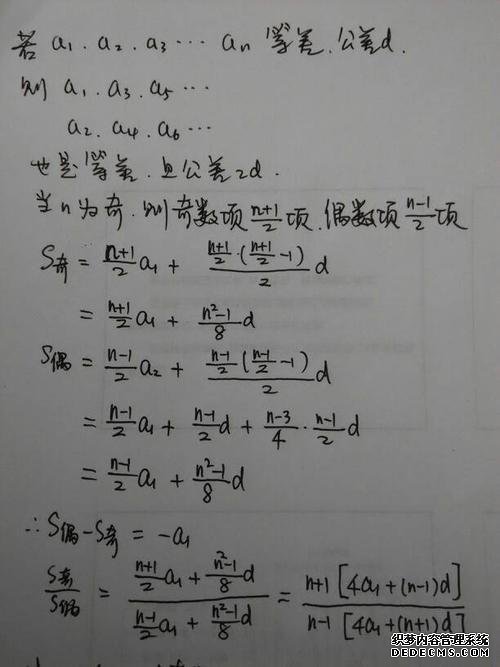 若 a₁. a₂. a₃ ⋯ aₙ 等差. 公差d.
则 a₁. a₃. a₅ ⋯
a₂. a₄. a₆ ⋯
也是等差. 且公差2d.
当n为奇. 则奇数项 (n+1)/2 项. 偶数项 (n-1)/2 项
S奇 = (n+1)/2 a₁ + ((n+1)/2·((n+1)/2-1))/2 d
= (n+1)/2 a₁ + (n²-1)/8 d
S偶 = (n-1)/2 a₂ + ((n-1)/2((n-1)/2-1))/2 d
= (n-1)/2 a₁ + (n-1)/2 d + (n-3)/4 · (n-1)/2 d
= (n-1)/2 a₁ + (n²-1)/8 d
∴ S偶-S奇 = -a₁
S奇/S偶 = ((n+1)/2 a₁ + (n²-1)/8 d)/((n-1)/2 a₁ + (n²-1)/8 d) = (n+1[4a₁+(n-1)d])/(n-1[4a₁+(n+1)d])
织梦内容管理系统
DEDECMS.COM